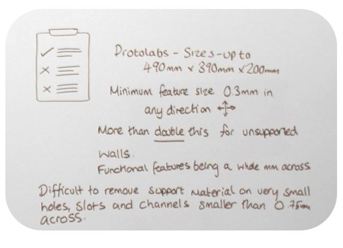 Protolabs - Sizes - up to
490mm x 390mm x 200mm
Minimum feature size 0.3mm in
any direction
More than double this for unsupported
walls.
Functional features being a whole mm across
Difficult to remove support material on very small
holes, slots and channels smaller than 0.75mm
across.